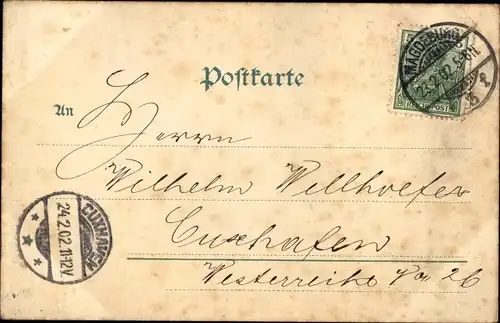 Postkarte
MAGDEBURG
23.2.02. 5-6N
REICHSPOST
An
Herrn
Wilhelm Wellhoefer
Cuxhafen
Westerreihe No 26
CUXHAVEN
24.2.02.11-12V